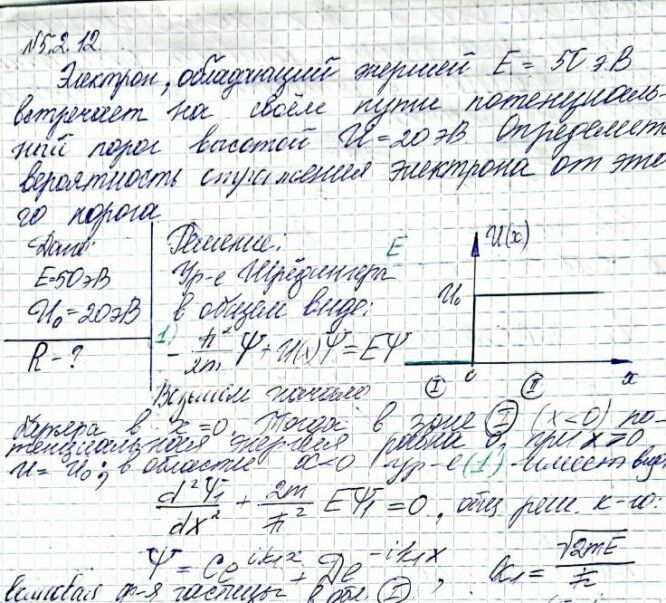 №5.2.12.
Электрон, обладающий энергией E = 50 эВ
встречает на своём пути потенциаль-
ный порог высотой U = 20 эВ. Определить
вероятность отражения электрона от это
го порога
Дано:
E=50эВ
U₀=20эВ
R - ?
Решение:
Ур-е Шрёдингера
в общем виде:
1) - ħ²/2m Ψ + U(x)Ψ = EΨ
Возьмём начало
E
U(x)
U₀
0
x
I
II
барьера в x=0. Тогда в зоне I (x<0) по-
тенциальная энергия равна 0, при x>0
U = U₀; в области x<0 ур-е (1) имеет вид
d²Ψ₁/dx² + 2m/ħ² EΨ₁ = 0, общ реш. к-го:
Ψ = Ce^{ik₁x} + De^{-ik₁x}, k₁ = √2mE/ħ
волновая ф-я частицы в обл. II